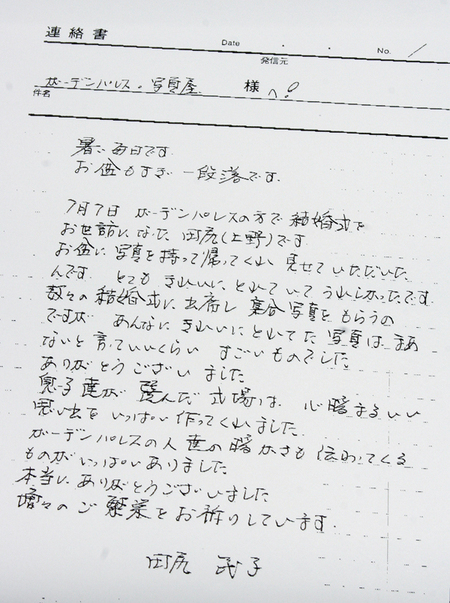 連絡書
Date ・ ・ No. 1
発信元
ガーデンパレス・写真屋 様へ!
件名
暑い毎日です
お盆もすぎ一段落です.
7月7日 ガーデンパレスの方で結婚式を
お世話になった 田尻(上野)です
お盆に写真を持って帰ってくれ 見せていただいた
んです. とてもきれいにとれていてうれしかったです.
数々の結婚式に出席し集合写真をもらうの
ですが あんなにきれいにとれてた写真は まあ
ないと言っていいくらい すごいものでした
ありがとうございました
息子達が選んだ式場は、心暖まるいい
思い出をいっぱい作ってくれました.
ガーデンパレスの人達の暖かさも伝わってくる
ものがいっぱいありました
本当にありがとうございました
益々のご繁栄をお祈りしています.
田尻 民子